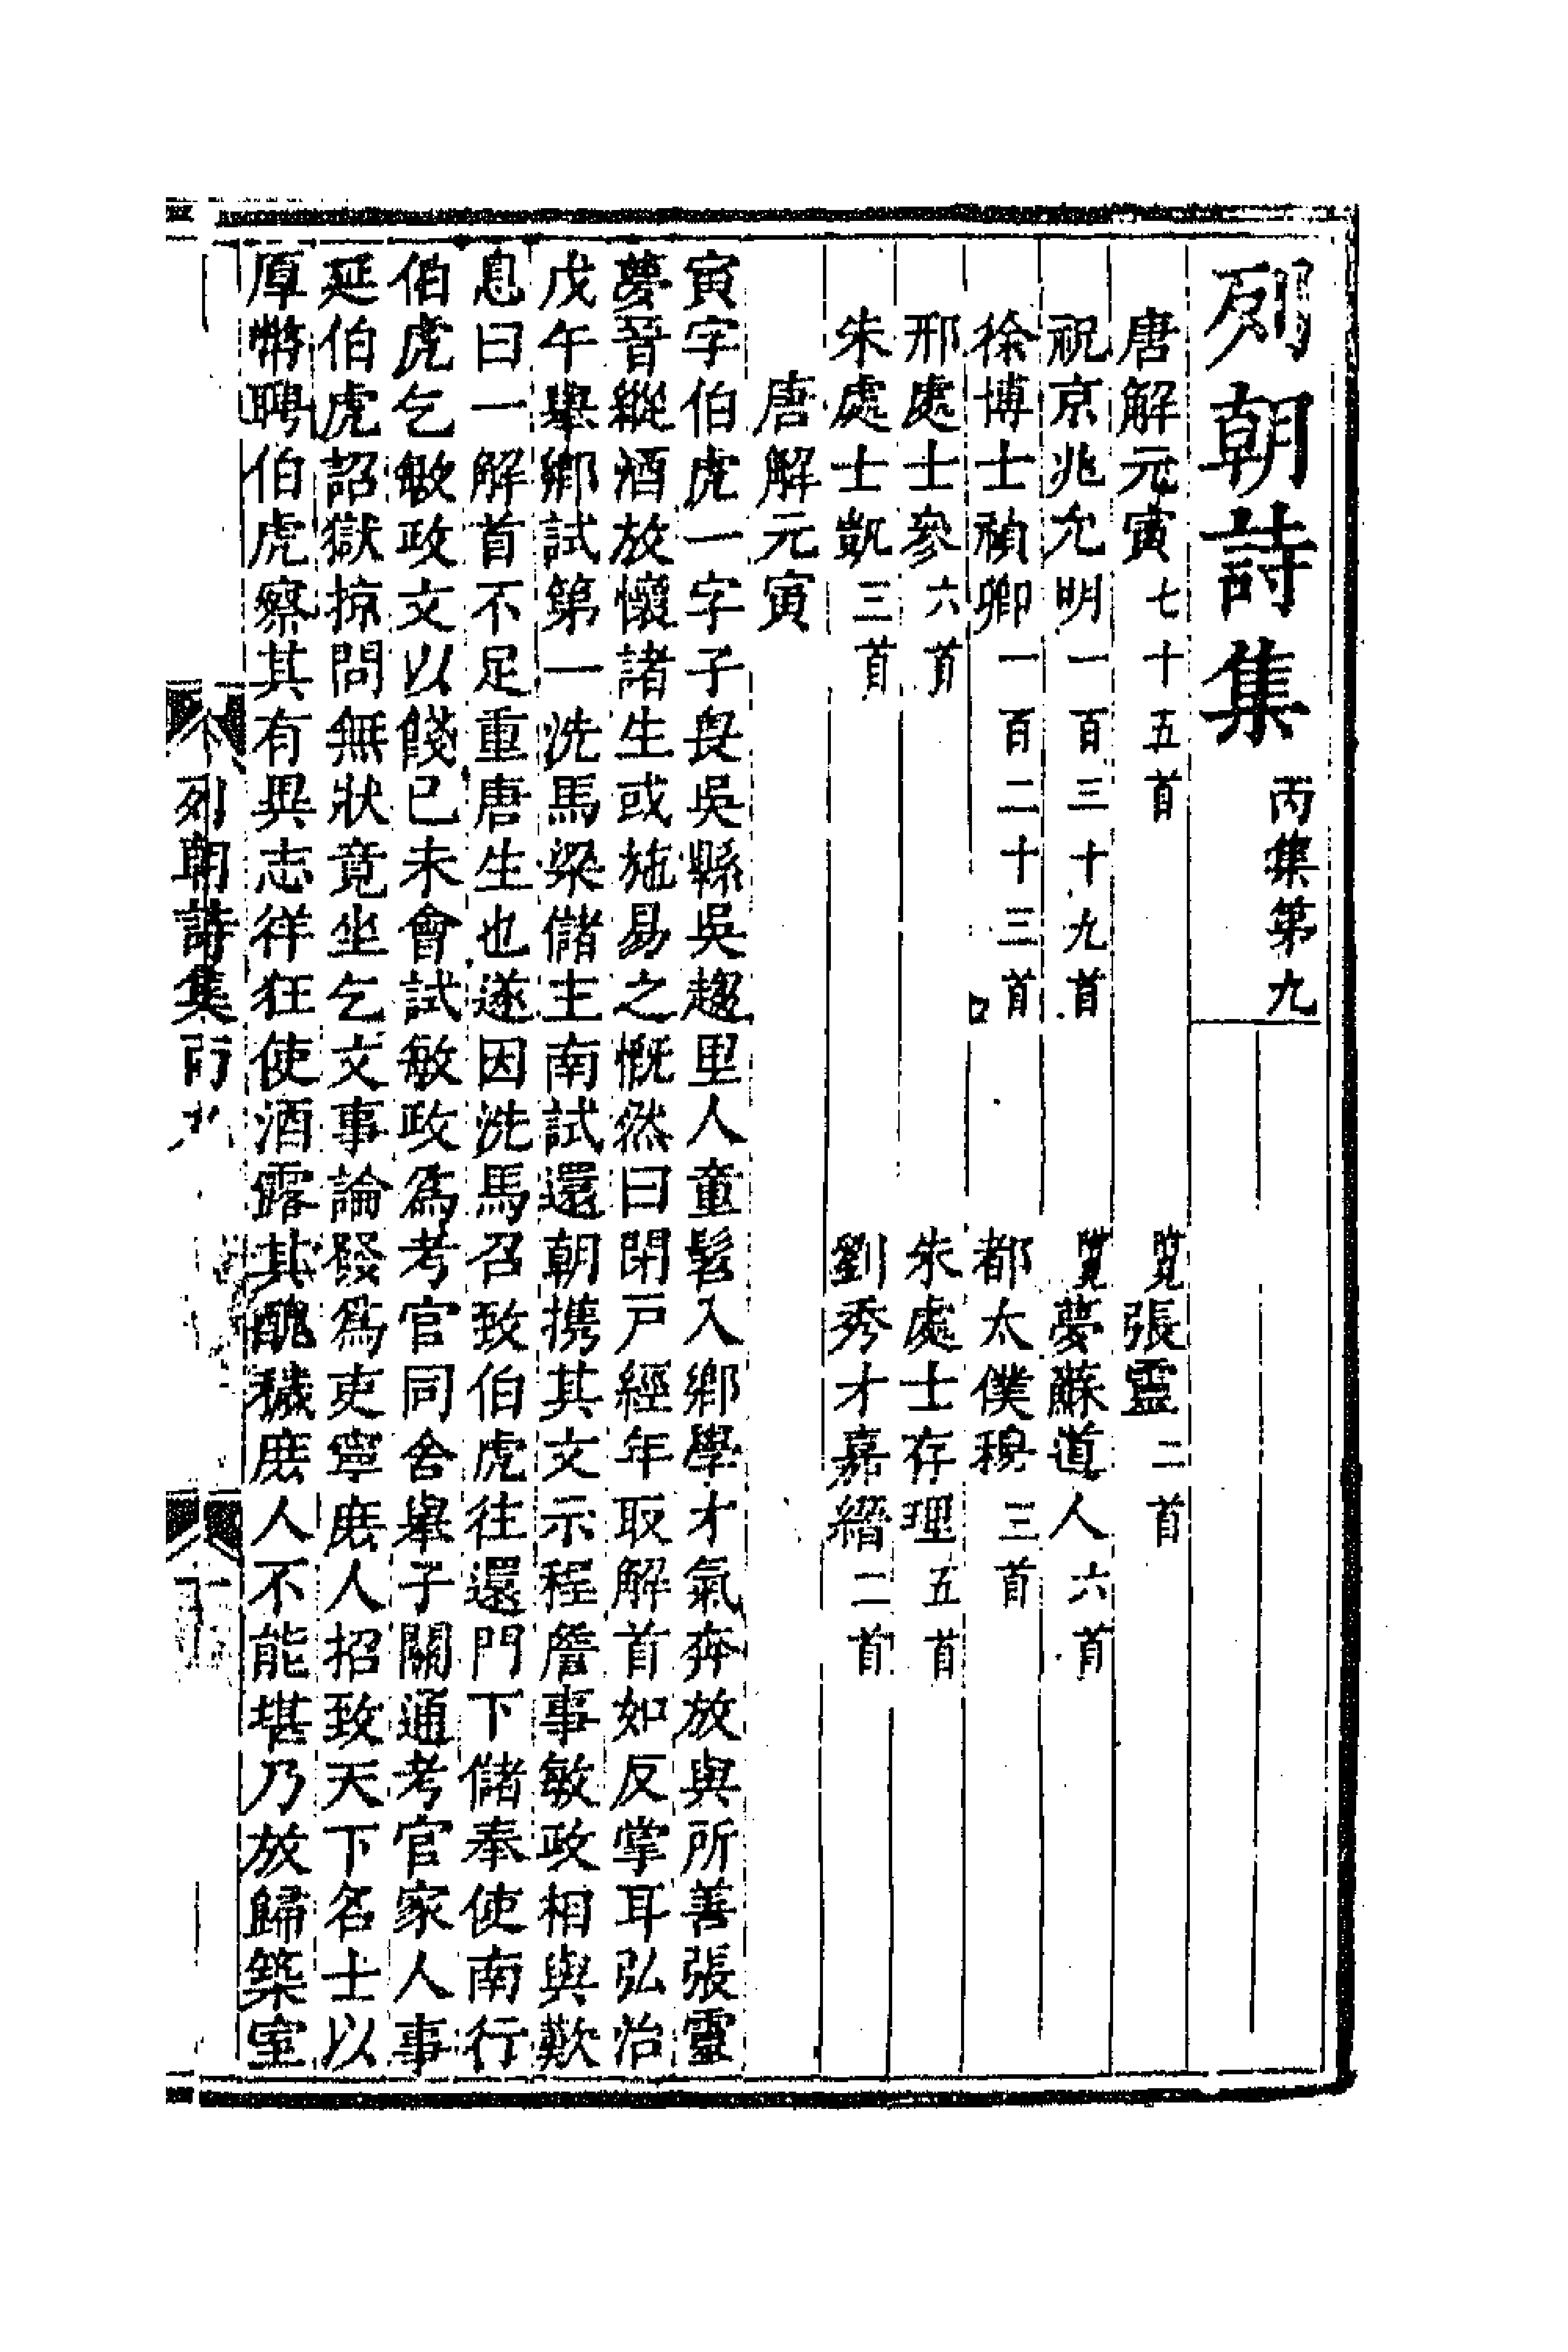 列朝詩集 丙集第九
唐解元寅七十五首 附見張靈二首
祝京兆允明一百三十九首 附見夢蘇道人六首
徐博士禎卿一百二十三首 都太僕穆三首
邢處士參六首 朱處士存理五首
朱處士凱三首 劉秀才嘉𦆯二首
唐解元寅
寅字伯虎一字子畏吳縣吳趨里人童髫入鄉學才氣奔放與所善張靈
夢晉縱酒放懷諸生或施易之慨然曰閉戶經年取解首如反掌耳弘治
戊午舉鄉試第一洗馬梁儲主南試還朝攜其文示程詹事敏政相與歎
息曰一解首不足重唐生也遂因洗馬召致伯虎往還門下儲奉使南行
伯虎乞敏政文以餞已未會試敏政為考官同舍舉子關通考官家人事
延伯虎詔獄掠問無狀竟坐乞文事論發為吏寧庶人招致天下名士以
厚幣聘伯虎察其有異志佯狂使酒露其醜穢庶人不能堪乃放歸築室
列朝詩集丙九